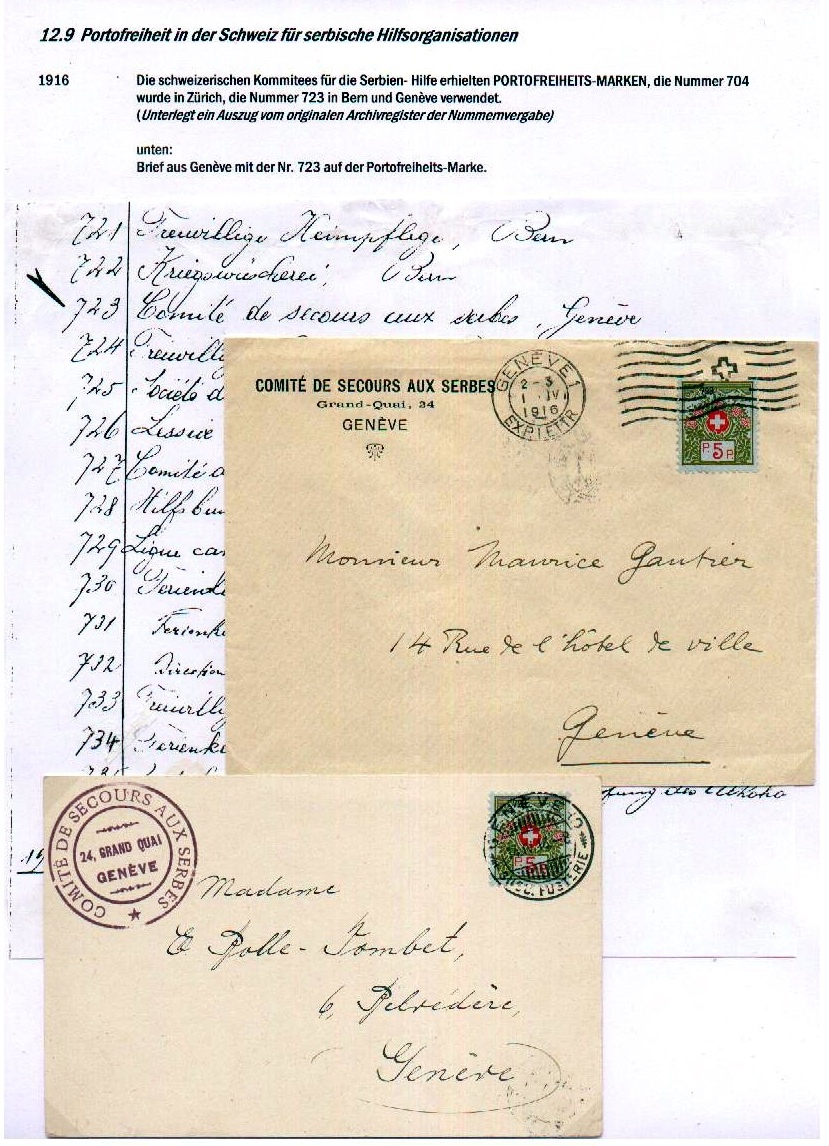 12.9 Portofreiheit in der Schweiz für serbische Hilfsorganisationen
1916 Die schweizerischen Kommitees für die Serbien- Hilfe erhielten PORTOFREIHEITS-MARKEN, die Nummer 704
wurde in Zürich, die Nummer 723 in Bern und Genève verwendet.
(Unterlegt ein Auszug vom originalen Archivregister der Nummernvergabe)
unten:
Brief aus Genève mit der Nr. 723 auf der Portofreiheits-Marke.
721 Freiwillige Bern
722 Kriegswäscherei, Bern
723 Comité de secours aux serbes, Genève
724
725 Société d
726
727 Comité
728
729 Ligue
730
731
732 Direction
733
734
COMITÉ DE SECOURS AUX SERBES
Grand-Quai, 24
GENÈVE
GENÈVE 1
2-3
1 IV
1916
EXP. LETTR
P 5 P
Monsieur Maurice Gautier
14 Rue de l'hôtel de ville
Genève
COMITÉ DE SECOURS AUX SERBES
24, GRAND QUAI
GENÈVE
P 5
Madame
E Rolle-Tombet,
6, Belvédère,
Genève